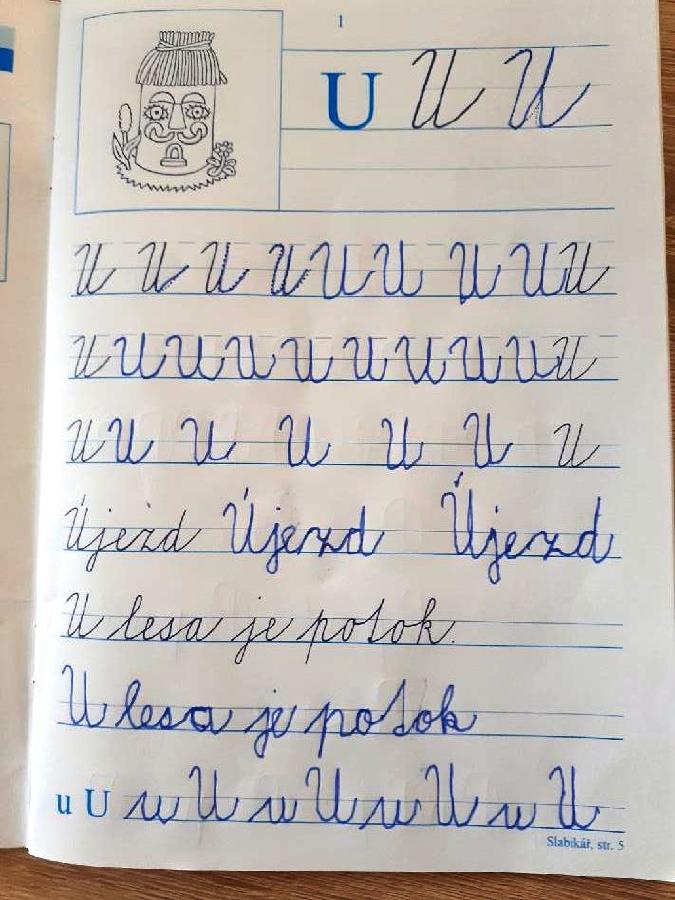 1
U U U
U U U U U U U U U
U U U U U U U U U U
U U U U U U U
Újezd Újezd Újezd
U lesa je potok.
U lesa je potok
u U u U u U u U u U
Slabikář, str. 5